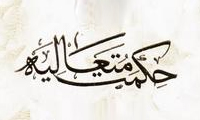 حکمت متعالیه